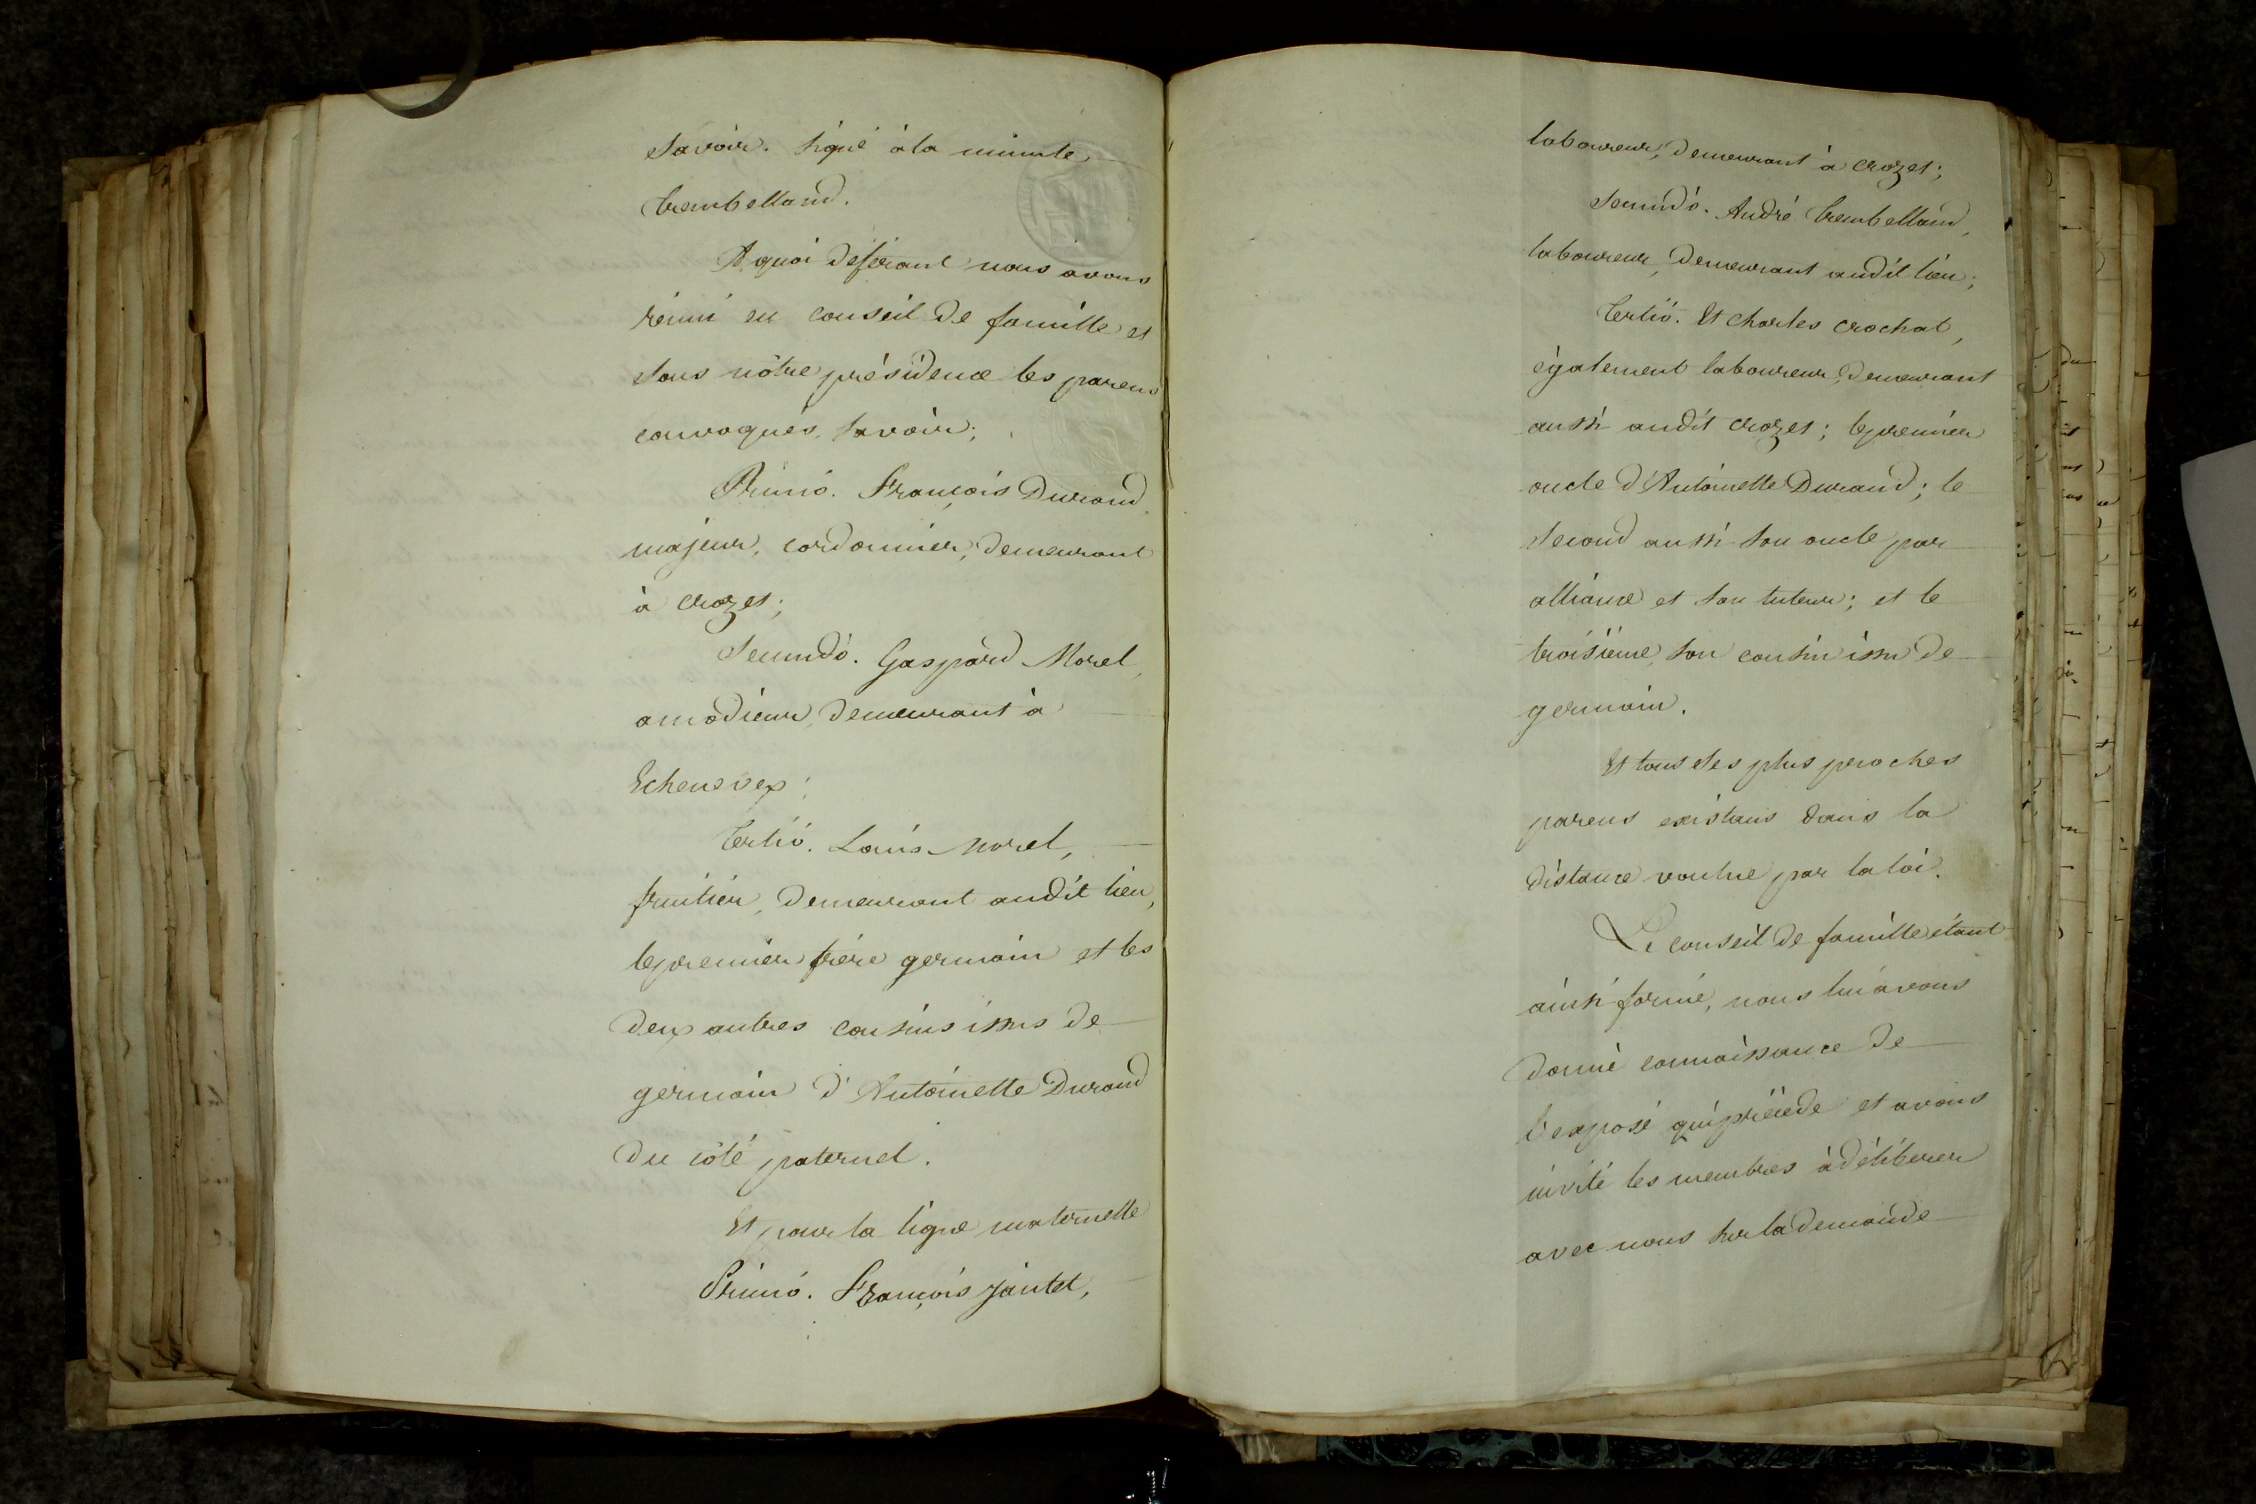 Savoir. Signé à la minute,
Trembelland.
A quoi déférant nous avons
réuni en conseil de famille et
sous nôtre présidence les parens
convoqués, Savoir;
Primò. François Durand
majeur, cordonnier, demeurant
à Crozet;
Secundò. Gaspard Morel,
amodieur, demeurant à
Echenevex;
Tertiò. Louis Morel,
fruitier, demeurant audit lieu,
le premier frère germain et les
deux autres cousins issus de
germain d'Antoinette Durand
du côté paternel.
Et pour la ligne maternelle
Primò. François Jantet,
laboureur, demeurant à Crozet;
Secundò. André Trembelland,
laboureur, demeurant audit lieu;
Tertiò. Et Charles Crochat,
également laboureur, demeurant
aussi audit Crozet; le premier
oncle d'Antoinette Durand; le
second aussi son oncle par
alliance et son tuteur; et le
troisième, son cousin issu de
germain.
Et tous ses plus proches
parens existans dans la
distance voulue par la loi.
Le conseil de famille étant
ainsi formé, nous lui avons
donné connaissance de
l'exposé qui précède et avons
invité les membres à délibérer
avec nous sur la demande